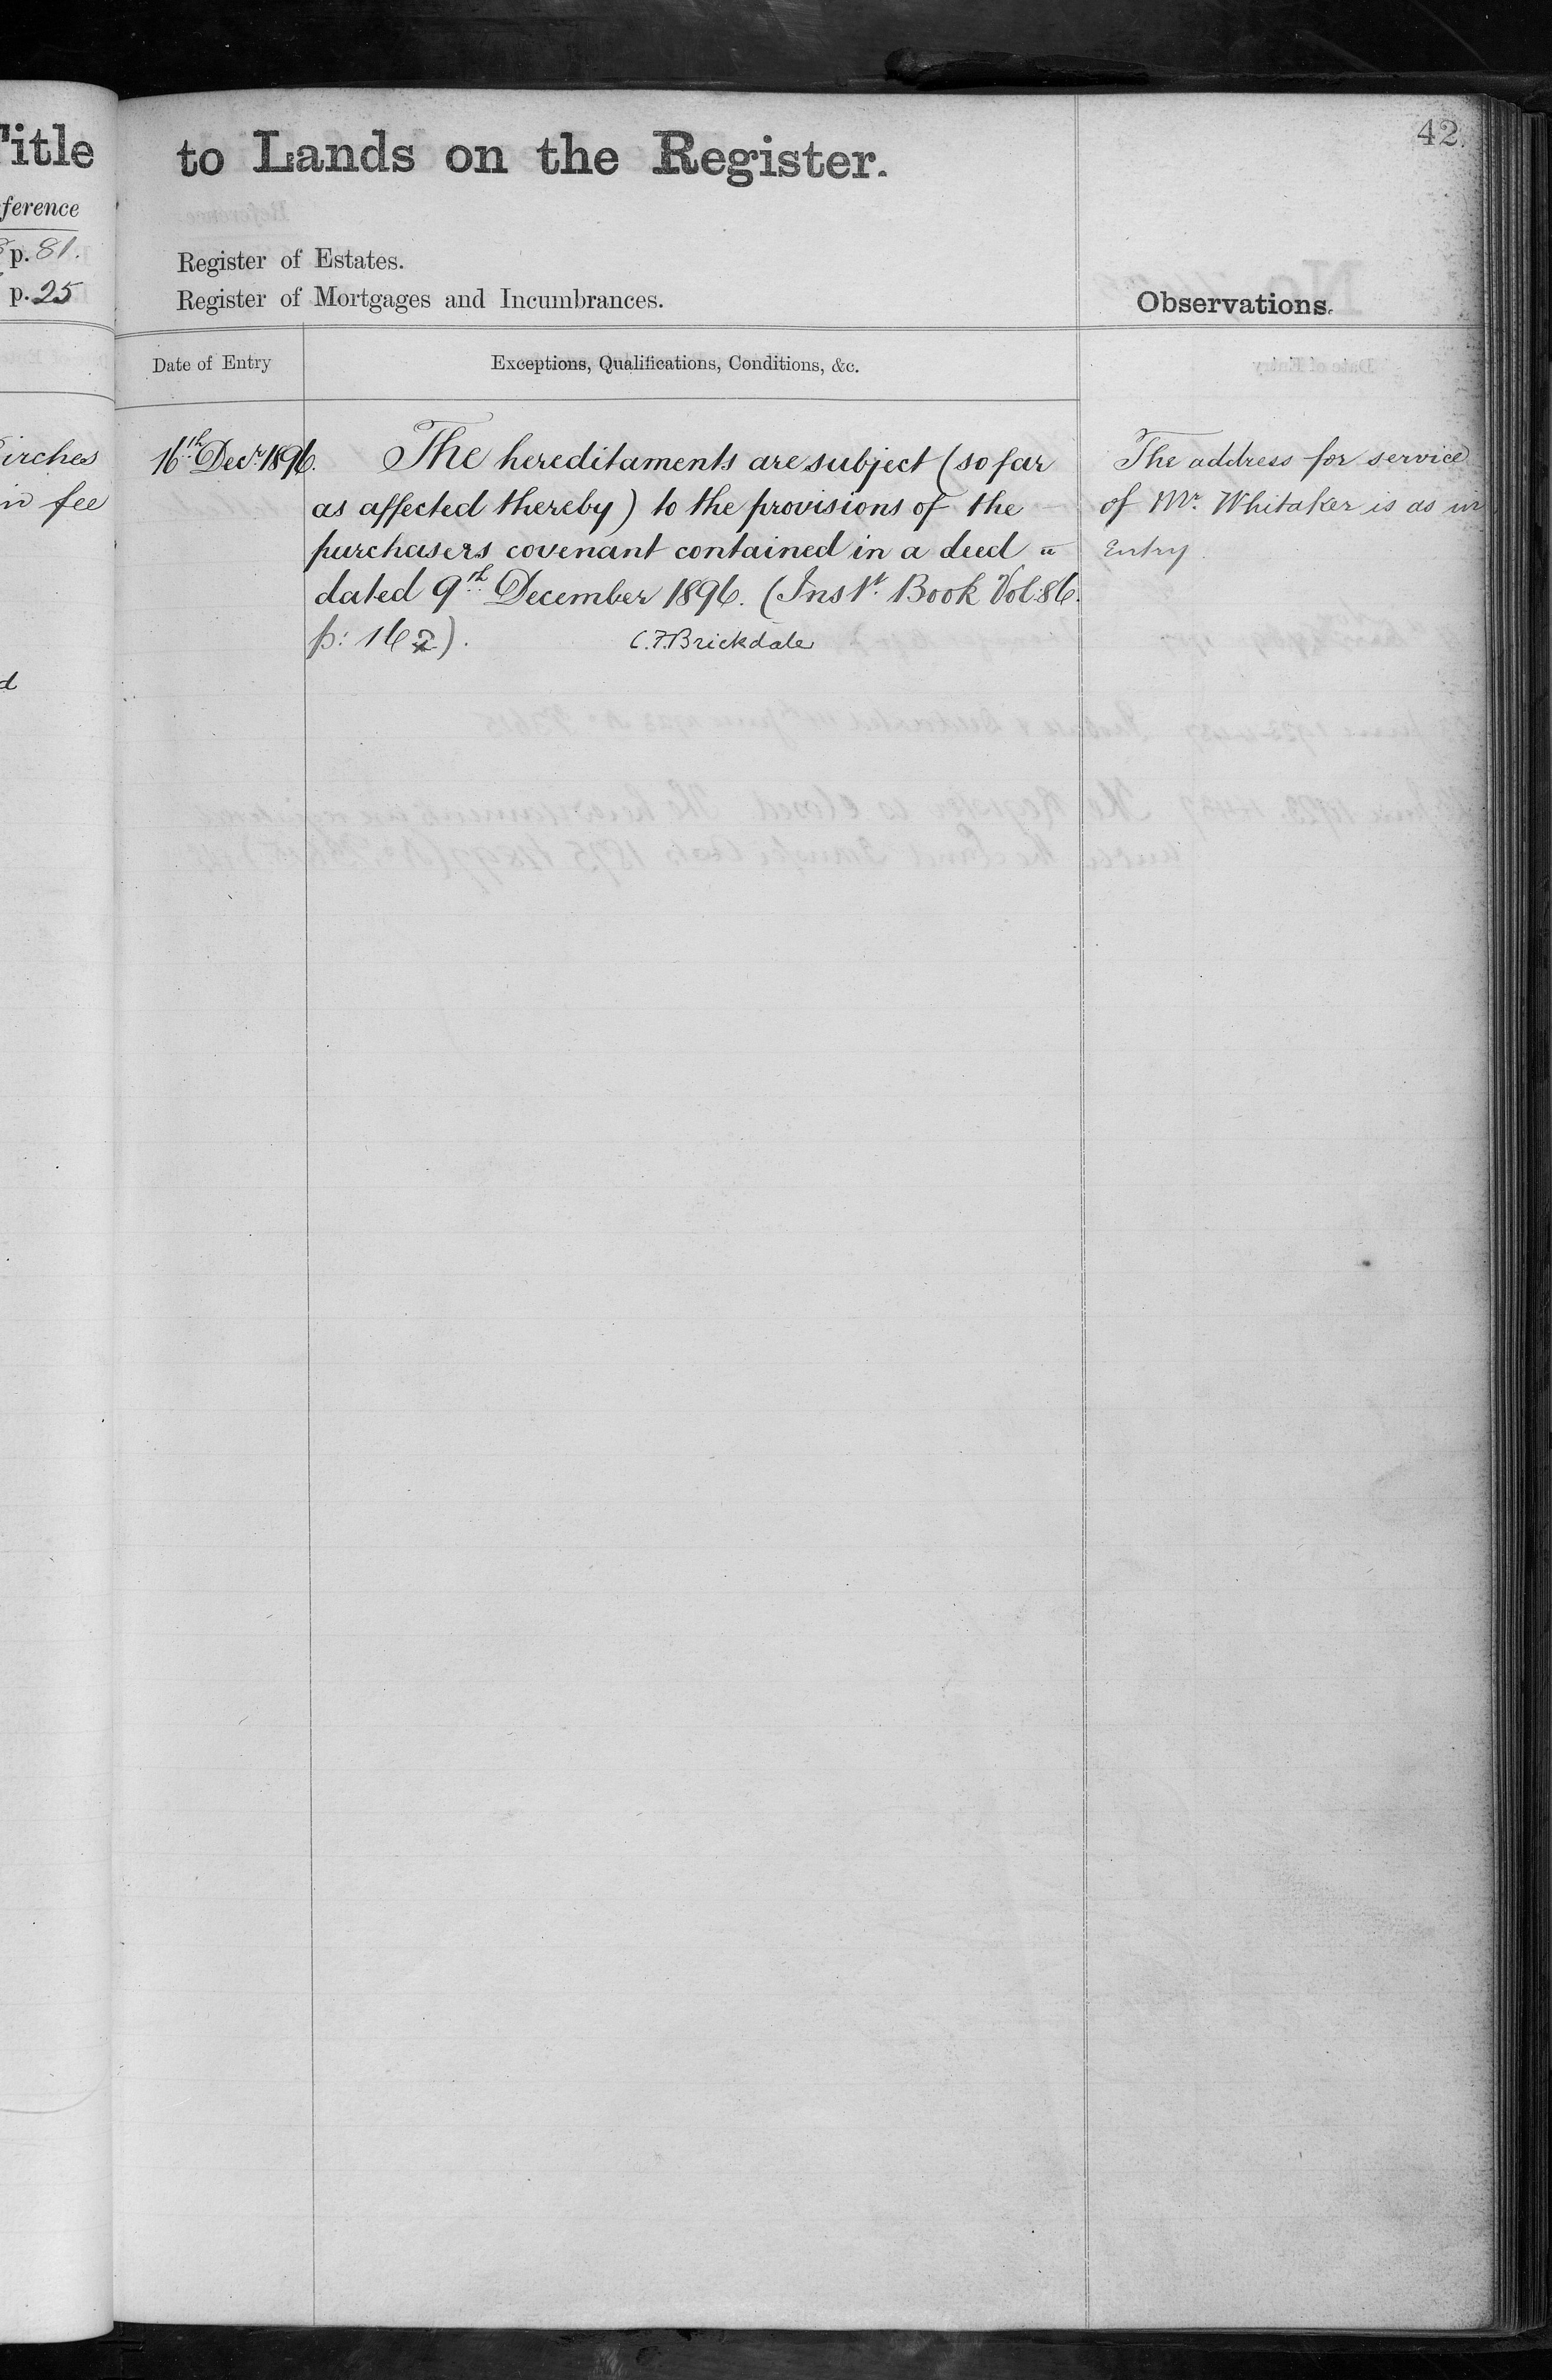 Title
ference
p. 81.
p. 25
irches
in fee
d
42.
to Lands on the Register.
Register of Estates.
Register of Mortgages and Incumbrances.
Observations.
Date of Entry
Exceptions, Qualifications, Conditions, &c.
16th Decr 1896.
The hereditaments are subject (so far
as affected thereby) to the provisions of the
purchasers covenant contained in a deed
dated 9th December 1896. (Inst. Book Vol: 86.
p: 162).
C.F. Brickdale
The address for service
of Mr. Whitaker is as in
Entry.